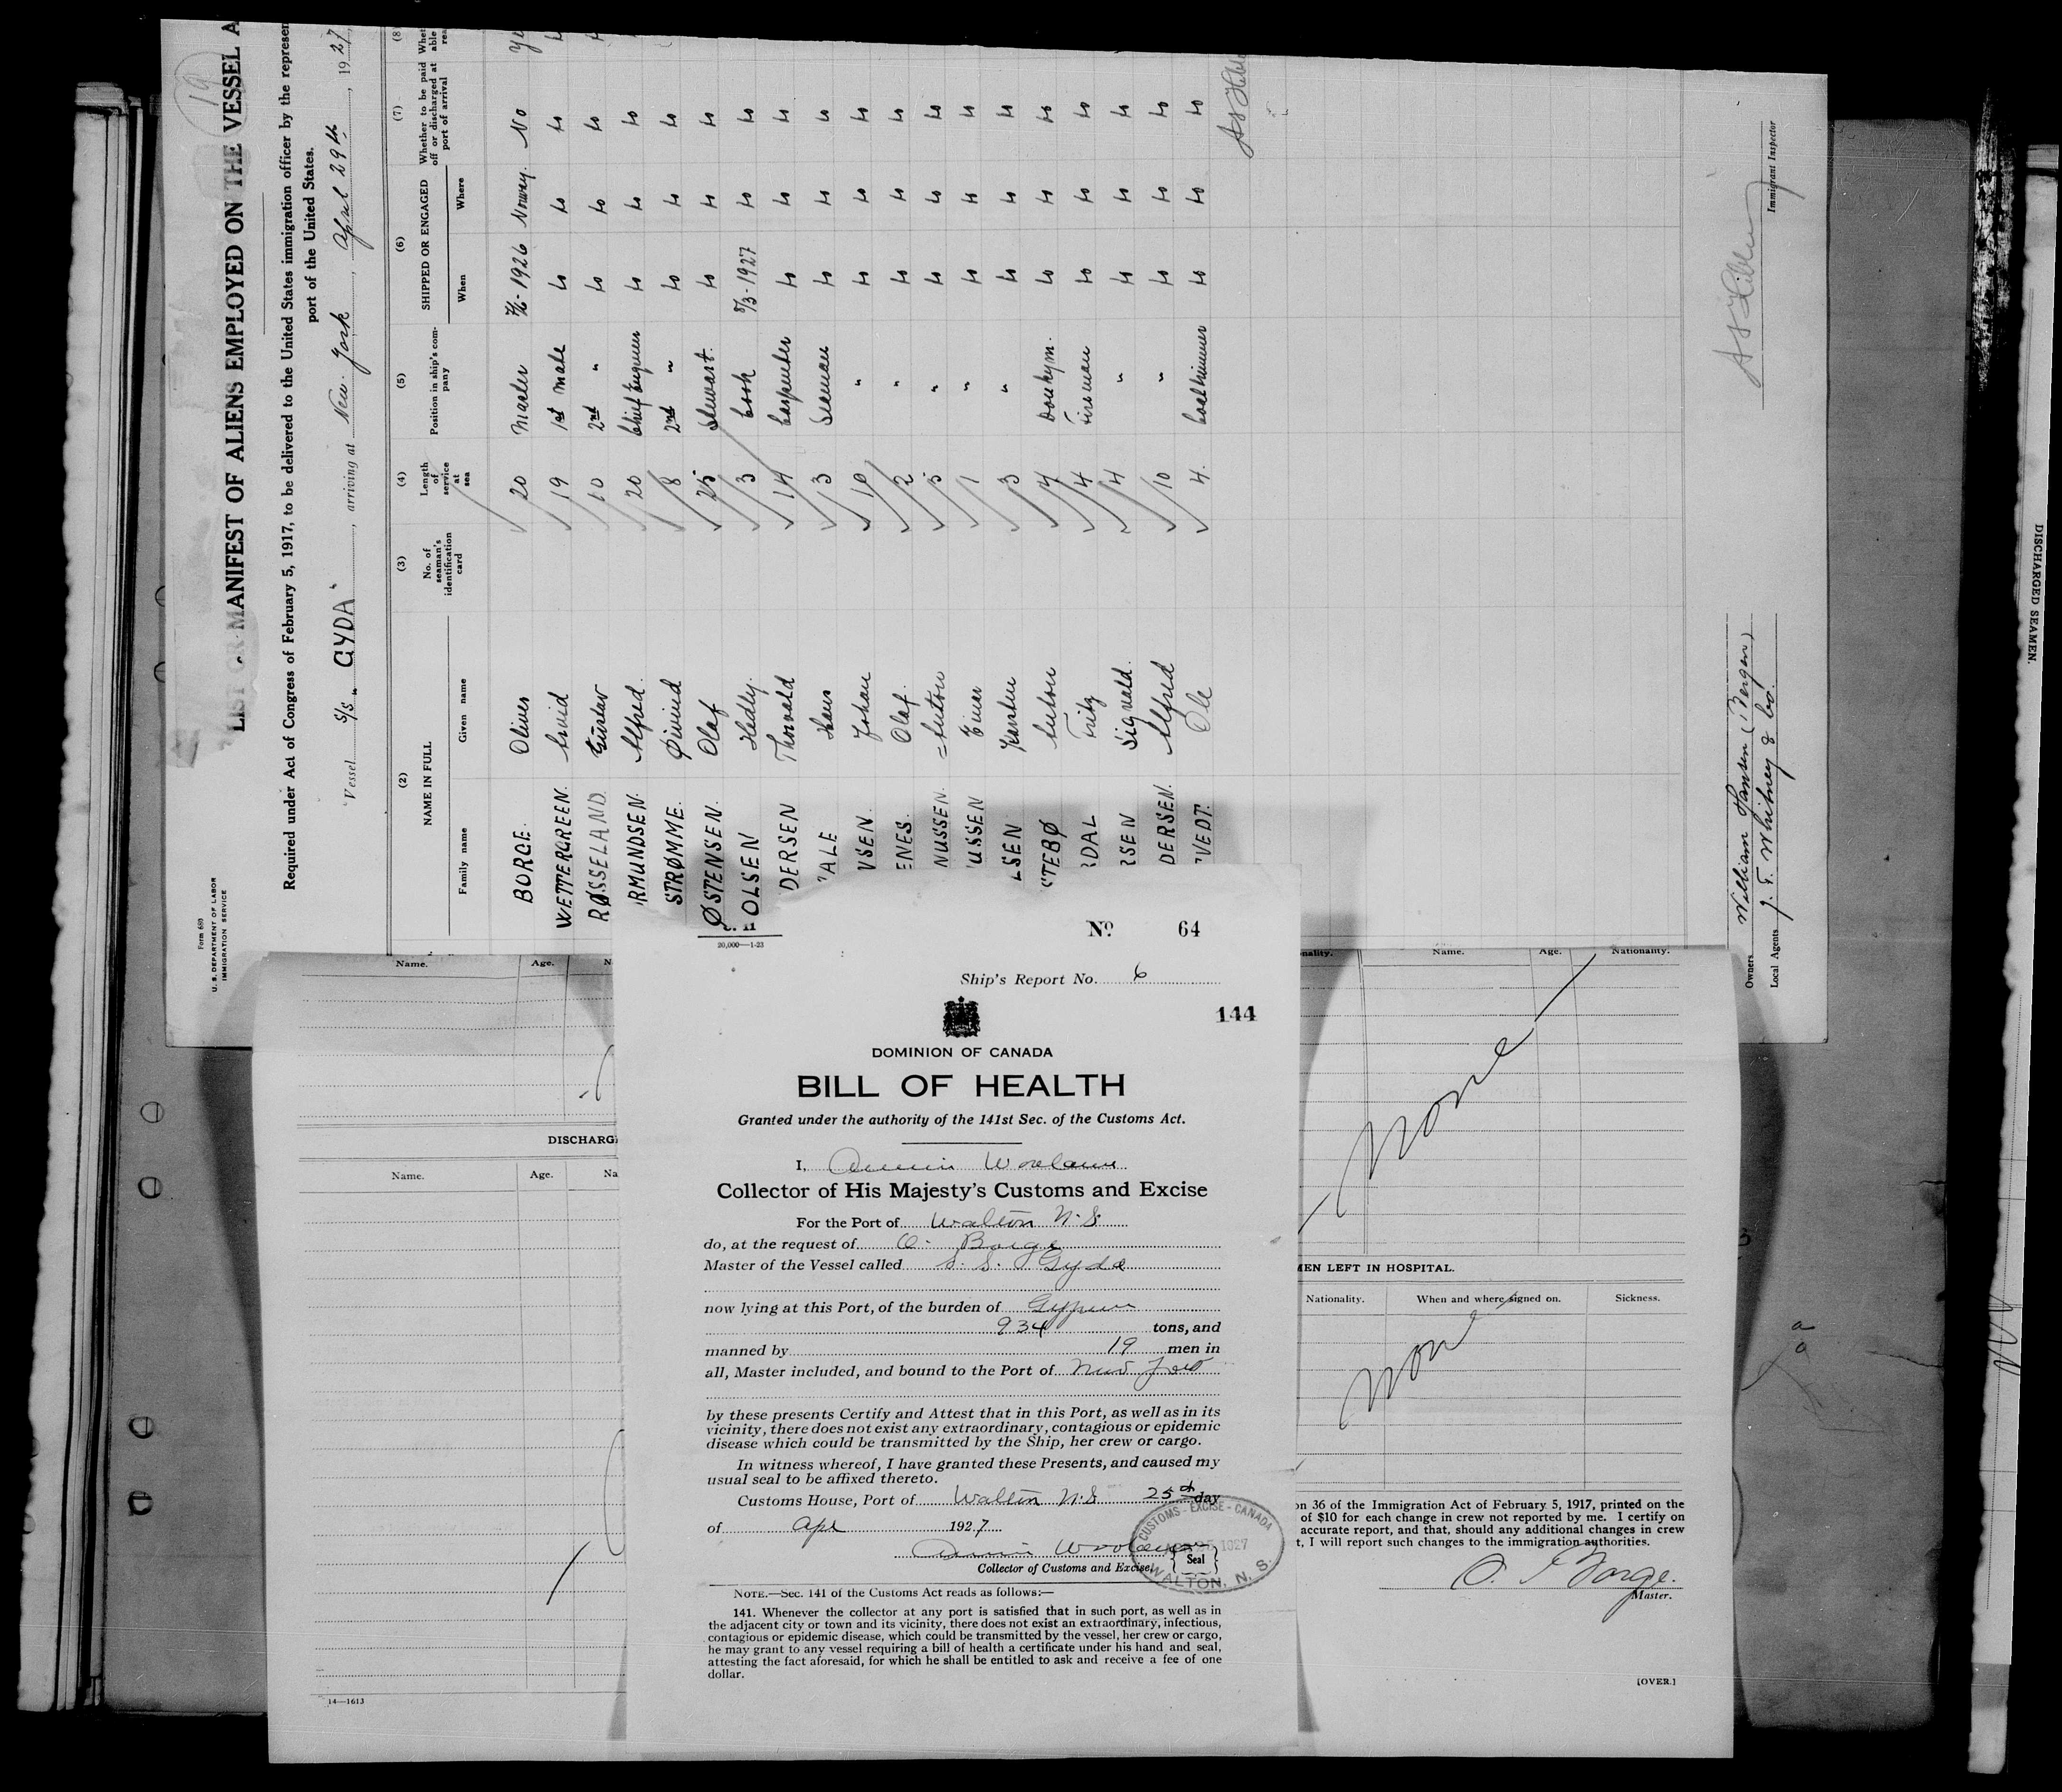 19
LIST OR MANIFEST OF ALIENS EMPLOYED ON THE VESSEL A
Required under Act of Congress of February 5, 1917, to be delivered to the United States immigration officer by the represen
port of the United States.
Vessel S/S "GYDA", arriving at New-York, April 29th, 1927
Form 680
U. S. DEPARTMENT OF LABOR
IMMIGRATION SERVICE
(2) (3) (4) (5) (6) (7) (8)
NAME IN FULL
Family name Given name
No. of seaman's identification card
Length of service at sea
Position in ship's company
SHIPPED OR ENGAGED
When Where
Whether to be paid off or discharged at port of arrival
BORGE. Oliver 20 Master 1926 Norway. No
WETTERGREEN. Arvid 19 1st Mate
RØSSELAND. Gustav 10 2nd "
RMUNDSEN. Alfred. 20 Chief Engineer
STRØMME. Øivind 8 2nd "
ØSTENSEN. Olaf 25 Stewart.
OLSEN Hedly. 3 Cook 8/3-1927
DERSEN Thorvald 14 Carpenter
ALE Hans 3 Seaman
VSEN. Johan 10 "
ENES. Olaf. 2 "
NUSSEN. Anton 5 "
USSEN Einar 1 "
LSEN Karsten 3 "
STEBØ Anton 4 Donkym.
RDAL Fritz 4 Fireman
RSEN Sigvald. 4 "
DERSEN. Alfred 10 "
VEDT. Ole 4.
Owners William Hansen (Bergen)
Local Agents J. T. Whitney & Co.
Immigrant Inspector
DISCHARGED SEAMEN.
Name. Age. Na
DISCHARG
Name. Age. Na
14—1613
20,000—1-23
No 64
Ship's Report No. 6
144
DOMINION OF CANADA
BILL OF HEALTH
Granted under the authority of the 141st Sec. of the Customs Act.
I,
Collector of His Majesty's Customs and Excise
For the Port of Walton N.S.
do, at the request of O. Borge
Master of the Vessel called S. S. Gyda
now lying at this Port, of the burden of Gypsum
934 tons, and
manned by 19 men in
all, Master included, and bound to the Port of New York
by these presents Certify and Attest that in this Port, as well as in its
vicinity, there does not exist any extraordinary, contagious or epidemic
disease which could be transmitted by the Ship, her crew or cargo.
In witness whereof, I have granted these Presents, and caused my
usual seal to be affixed thereto.
Customs House, Port of Walton N.S 25th day
of Apl 1927
Collector of Customs and Excise.
Seal
CUSTOMS - EXCISE - CANADA
WALTON, N. S.
NOTE.—Sec. 141 of the Customs Act reads as follows:—
141. Whenever the collector at any port is satisfied that in such port, as well as in
the adjacent city or town and its vicinity, there does not exist an extraordinary, infectious,
contagious or epidemic disease, which could be transmitted by the vessel, her crew or cargo,
he may grant to any vessel requiring a bill of health a certificate under his hand and seal,
attesting the fact aforesaid, for which he shall be entitled to ask and receive a fee of one
dollar.
nality. Name. Age. Nationality.
None
MEN LEFT IN HOSPITAL.
Nationality. When and where signed on. Sickness.
None
on 36 of the Immigration Act of February 5, 1917, printed on the
of $10 for each change in crew not reported by me. I certify on
accurate report, and that, should any additional changes in crew
t, I will report such changes to the immigration authorities.
O. Borge.
Master.
[OVER.]